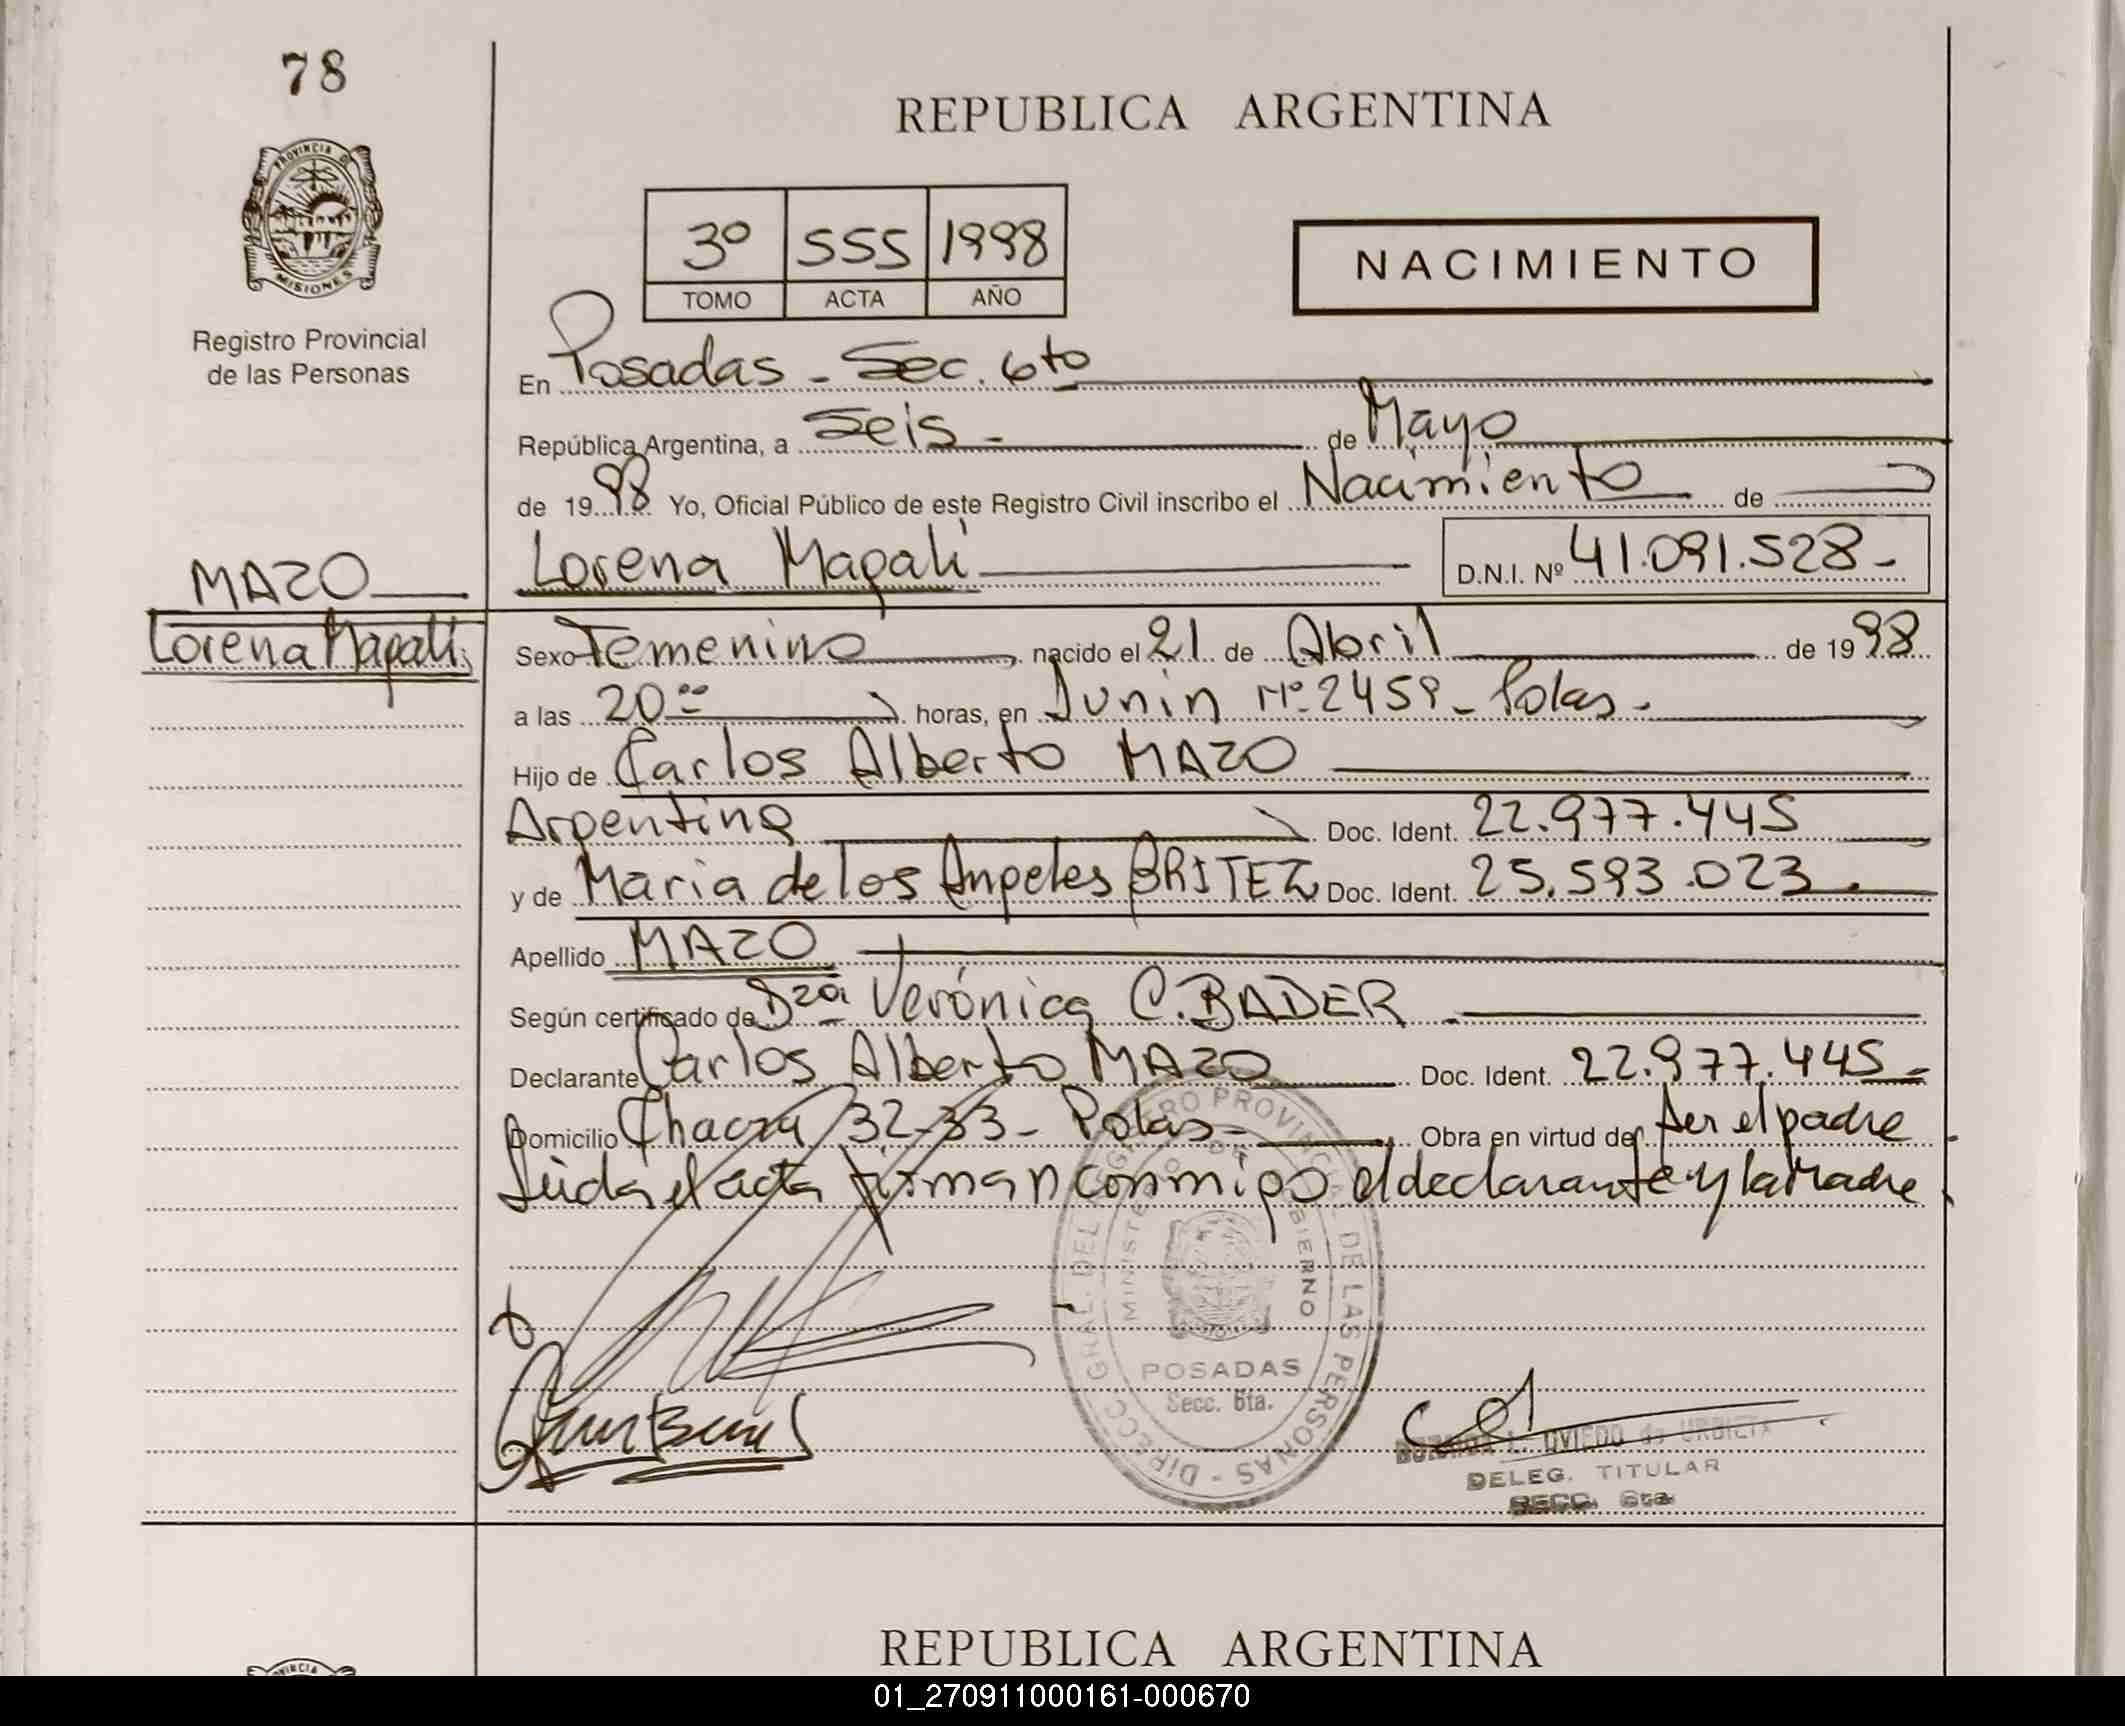 78
REPUBLICA ARGENTINA
PROVINCIA DE
MISIONES
Registro Provincial
de las Personas
3º 555 1998
TOMO ACTA AÑO
NACIMIENTO
En Posadas - Sec. 6to
República Argentina, a Seis - de Mayo
de 1998 Yo, Oficial Público de este Registro Civil inscribo el Nacimiento de
Lorena Magalí D.N.I. Nº 41.091.528 -
MAZO
Lorena Magalí
Sexo Femenino nacido el 21 de Abril de 1998
a las 20 horas, en Junin Nº 2459 - Pdas -
Hijo de Carlos Alberto MAZO
Argentina Doc. Ident. 22.977.445
y de Maria de los Angeles BRITEZ Doc. Ident. 25.593.023 -
Apellido MAZO
Según certificado de Verónica C. BADER -
Declarante Carlos Alberto MAZO Doc. Ident. 22.977.445 -
Domicilio Chacra 32-33 - Pdas - Obra en virtud de Ser el padre
Leida el acta firman conmigo el declarante y la Madre
DIRECC. GRAL. DEL REGISTRO PROVINCIAL DE LAS PERSONAS -
MINISTERIO DE GOBIERNO
POSADAS
Secc. 6ta.
L. OVIEDO de URBIETA
DELEG. TITULAR
SECC. 6ta
REPUBLICA ARGENTINA
01_270911000161-000670